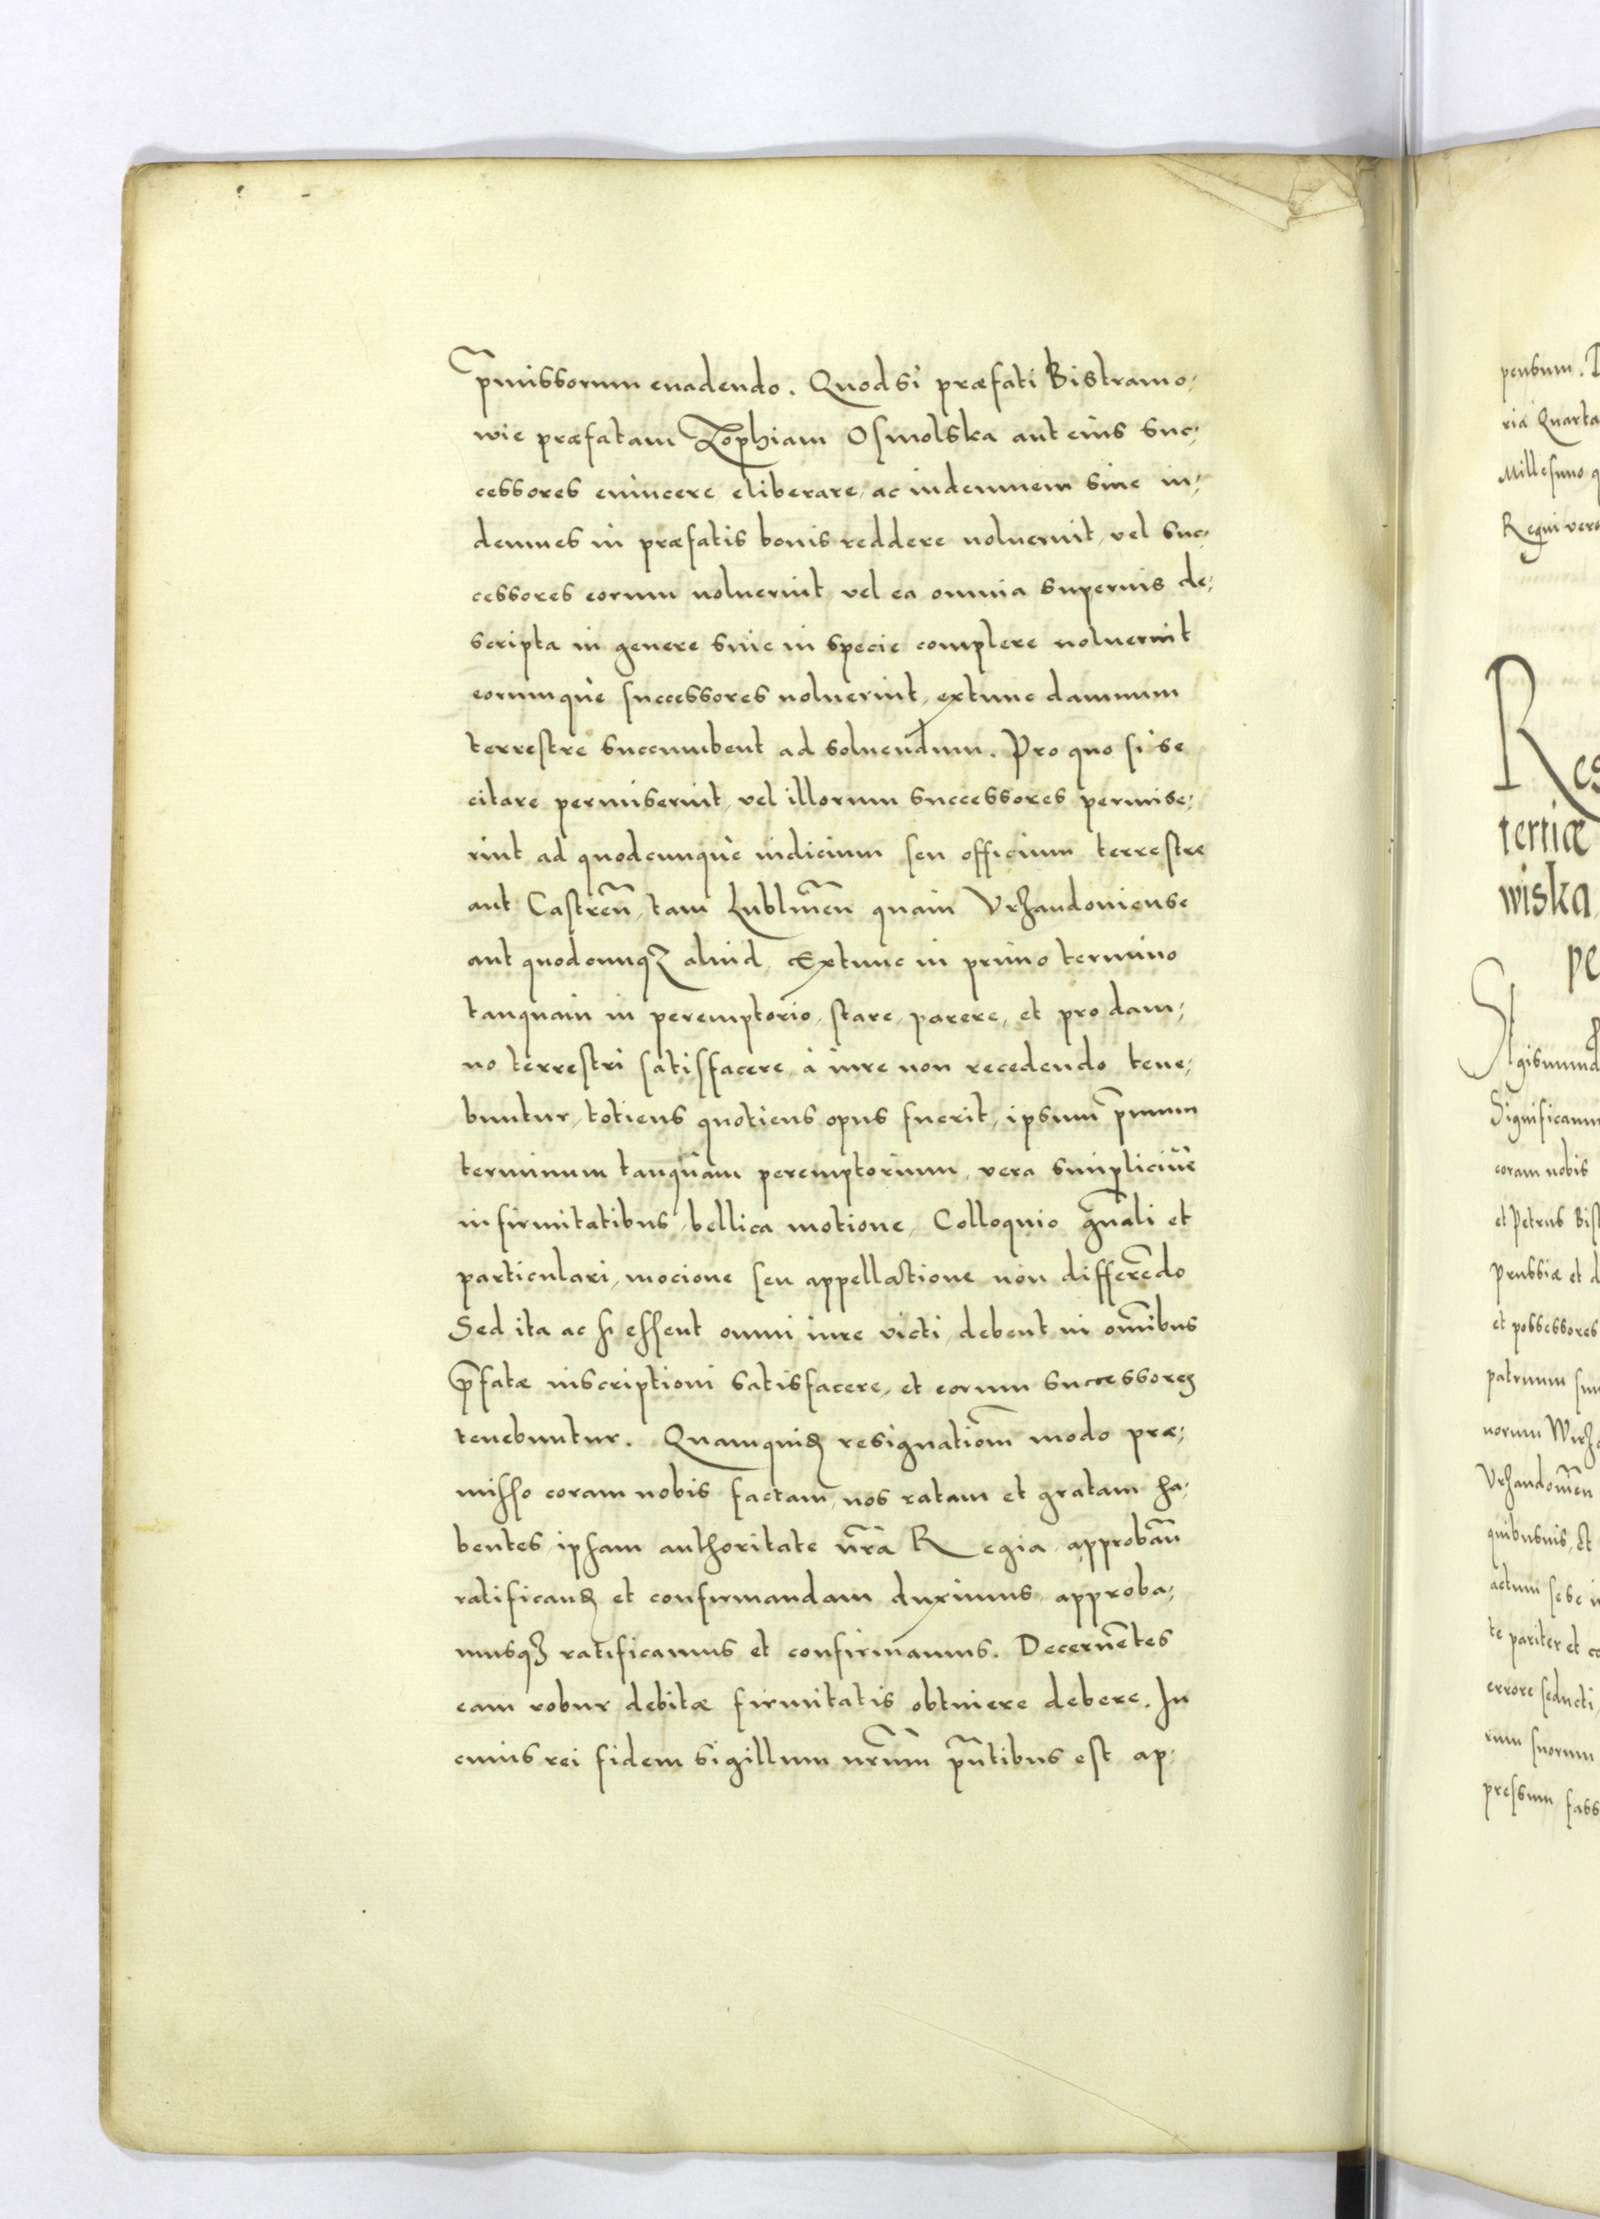 p̄missorum euadendo. Quodsi præfati Bistramo;
wie præfatam Zophiam Osmolska aut eius suc;
cessores euincere eliberare, ac indemnem siue in;
demnes in præfatis bonis reddere noluerint, vel suc;
cessores eorum noluerint, vel ea omnia superuis de;
scripta in genere siue in specie complere noluerint
eorumquè successores noluerint, extunc damnum
terrestre succumbent ad soluendum. Pro quo si se
citare permiserint, vel illorum successores permise;
rint ad quodcunquè iudicium seu officium terrestre
aut Castreñ, tam Lublineñ quam Vrzandouiense
aut quodcunqz aliud, Extunc in primo termino
tanquam in peremptorio, stare, parere, et pro dam;
no terrestri satisfacere, à iure non recedendo tene;
buntur, totiens quotiens opus fuerit, ipsum p̄mum
terminum tanquam peremptorium, vera simpliciuè
infirmitatibus, bellica motione, Colloquio gn̄ali et
particulari, mocione seu appellatione non differēdo
Sed ita ac si essent omni iure victi, debent in om̄ibus
p̄fatæ inscriptioni satisfacere, et eorum successores
tenebuntur. Quamquid resignatiom̄ modo præ;
misso coram nobis factam, nos ratam et gratam ha;
bentes, ipsam authoritate nr̄a Regia approbañ
ratificand et confirmandam duximus, approba;
musqz ratificamus et confirmamus. Decernētes
eam robur debitæ firmitatis obtinere debere. In
cuius rei fidem sigillum nr̄um pn̄tibus est ap;
pensum.
ria Quarta
Millesimo q
Regni vero
Res
tertiæ
wiska,
pe
Sigismund
Significamu
coram nobis
et Petrus Bist
Prussiæ et d
et possessores
patruum su
norum Wirz
Vrzandouien
quibusuis, Et
actum sese i
te pariter et co
errore seducti,
rum suorum
pressum, fass